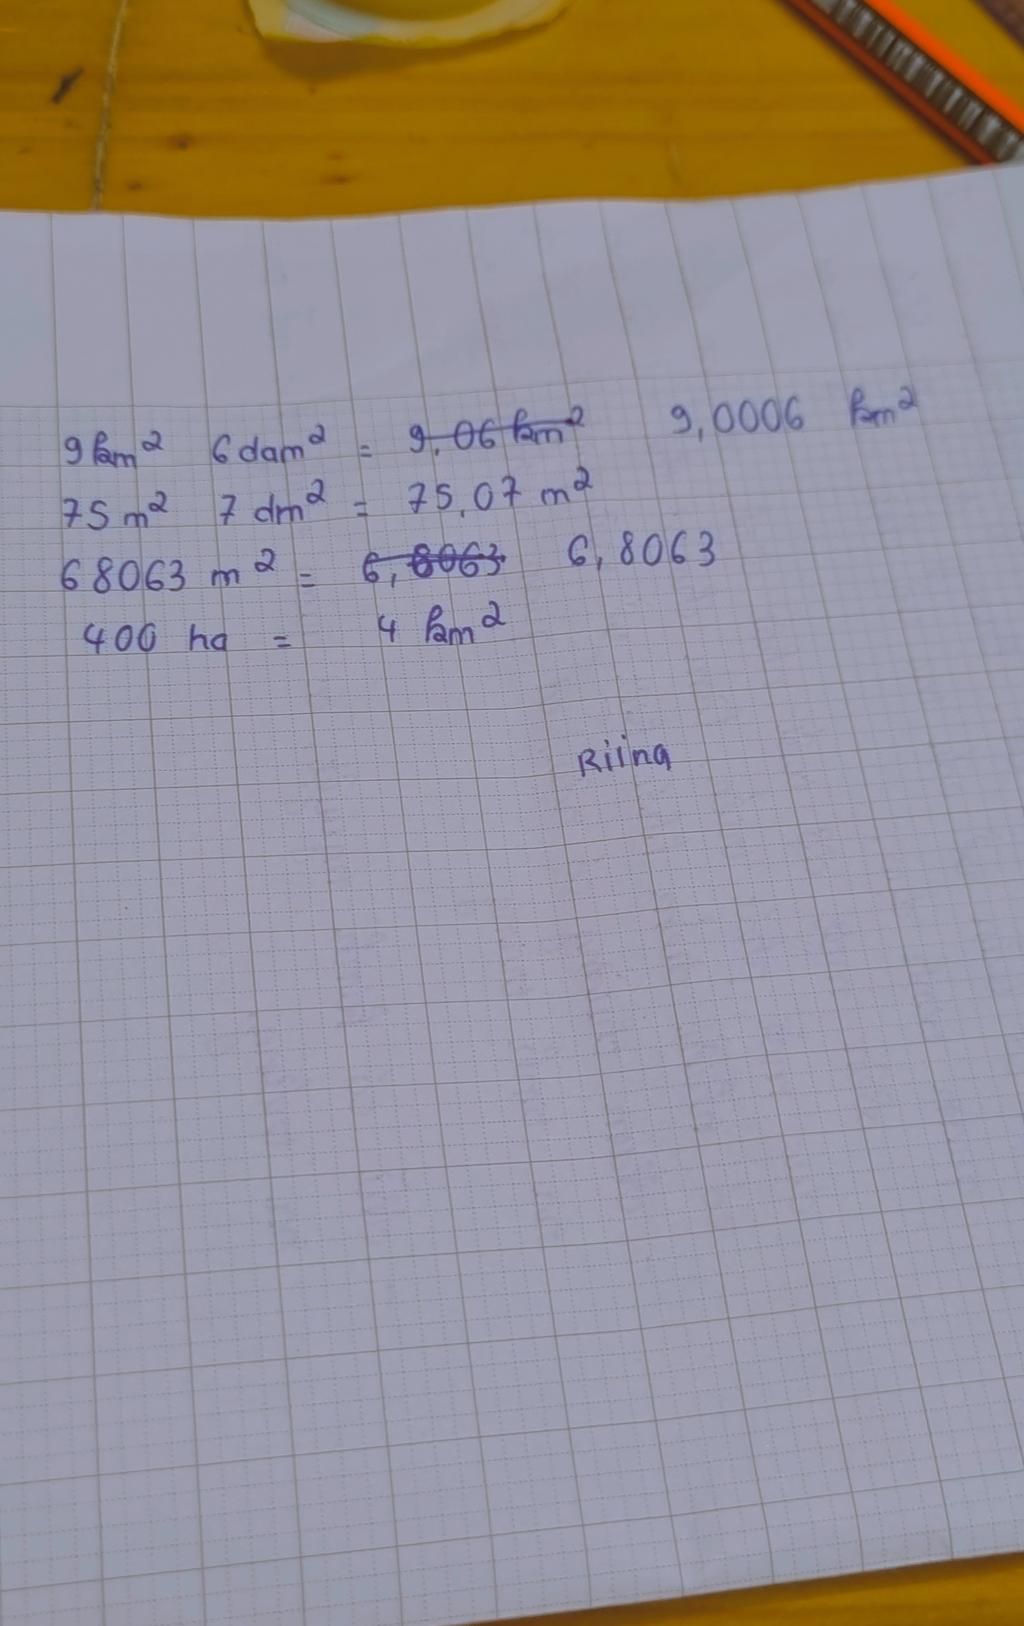 9 km² 6 dam² = 9,06 km² 9,0006 km²
75 m² 7 dm² = 75,07 m²
68063 m² = 6,8063 6,8063
400 ha = 4 km²
Riina